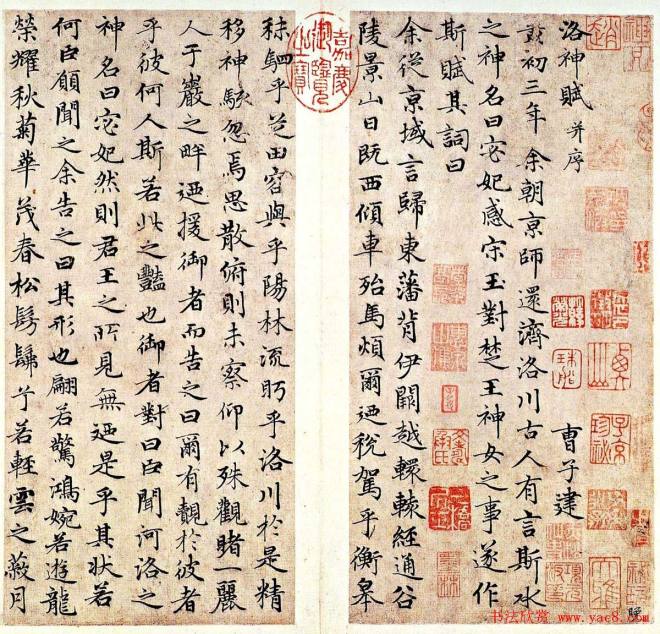 洛神賦 并序 曹子建
初三年余朝京師還濟洛川古人有言斯水
之神名曰宓妃感宋玉對楚王神女之事遂作
斯賦其詞曰
余從京域言歸東藩背伊闕越轘轅經通谷
陵景山日既西傾車殆馬煩爾迺稅駕乎衡皋
秣駟乎芝田容與乎陽林流眄乎洛川於是精
移神駭忽焉思散俯則未察仰以殊觀睹一麗
人于巖之畔迺援御者而告之曰爾有覿於彼者
乎彼何人斯若此之豔也御者對曰臣聞河洛之
神名曰宓妃然則君王之所見無迺是乎其狀若
何臣願聞之余告之曰其形也翩若驚鴻婉若遊龍
榮耀秋菊華茂春松髣髴兮若輕雲之蔽月
嘉慶御覽之寶
书法欣赏 www.yac8.com